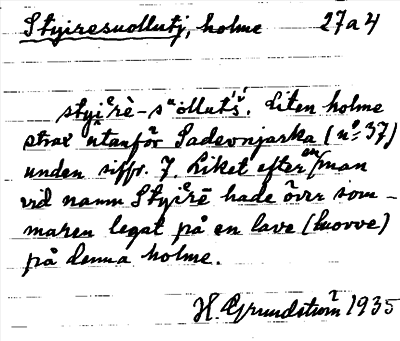 Styiresuollutj, holme 27a4
styi̊ˈrē-såˈollut́š́. Liten holme
strax utanför Sadevnjarka (nº 37)
unden siffr. 7. Liket efter en man
vid namn Styiˈrē hade över som-
maren legat på en lave (luovve)
på denna holme.
H. Grundström 1935